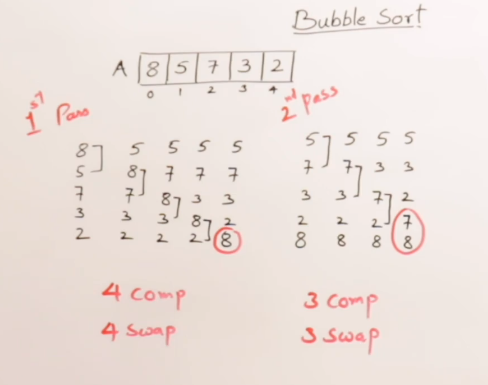 Bubble Sort
A 8 5 7 3 2
0 1 2 3 4
1st Pass
2nd pass
8 5 5 5 5
5 8 7 7 7
7 7 8 3 3
3 3 3 8 2
2 2 2 2 8
5 5 5 5
7 7 3 3
3 3 7 2
2 2 2 7
8 8 8 8
4 Comp
4 Swap
3 Comp
3 Swap